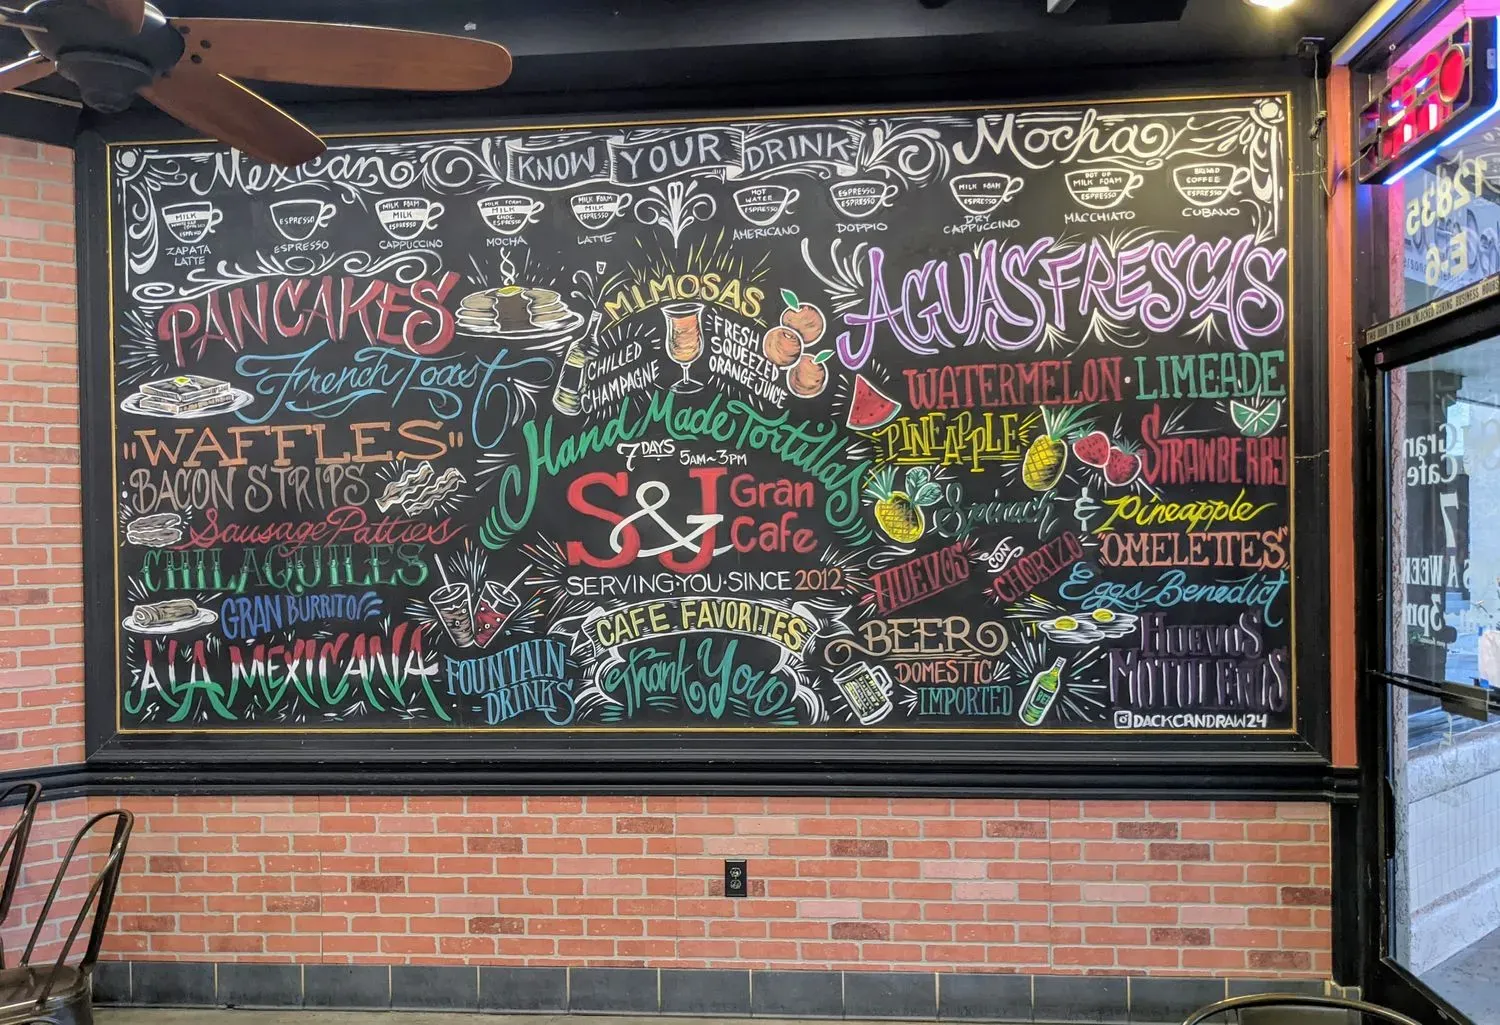 Mexican
KNOW YOUR DRINK
Mocha
MILK
ESPRESSO
ZAPATA
LATTE
ESPRESSO
ESPRESSO
MILK FOAM
MILK
ESPRESSO
CAPPUCCINO
MILK FOAM
MILK
CHOC.
ESPRESSO
MOCHA
MILK FOAM
MILK
ESPRESSO
LATTE
HOT
WATER
ESPRESSO
AMERICANO
ESPRESSO
ESPRESSO
DOPPIO
MILK FOAM
ESPRESSO
DRY
CAPPUCCINO
DOT OF
MILK FOAM
ESPRESSO
MACCHIATO
BREWED
COFFEE
ESPRESSO
CUBANO
PANCAKES
French Toast
"WAFFLES"
BACON STRIPS
Sausage Patties
CHILAQUILES
GRAN BURRITO
A LA MEXICANA
FOUNTAIN
DRINKS
MIMOSAS
CHILLED
CHAMPAGNE
FRESH
SQUEEZED
ORANGE JUICE
Hand Made Tortillas
7 DAYS 5AM~3PM
S&J Gran
Cafe
SERVING·YOU·SINCE 2012
CAFE FAVORITES
Thank You
AGUAS FRESCAS
WATERMELON · LIMEADE
PINEAPPLE
STRAWBERRY
Spinach & Pineapple
HUEVOS CON CHORIZO
"OMELETTES"
Eggs Benedict
BEER
DOMESTIC
IMPORTED
HUEVOS
MOTULEÑOS
DACKCRNDRAW24
12835
E-6
THIS DOOR TO REMAIN UNLOCKED DURING BUSINESS HOURS
Gran
Cafe
7
A WEEK
3pm